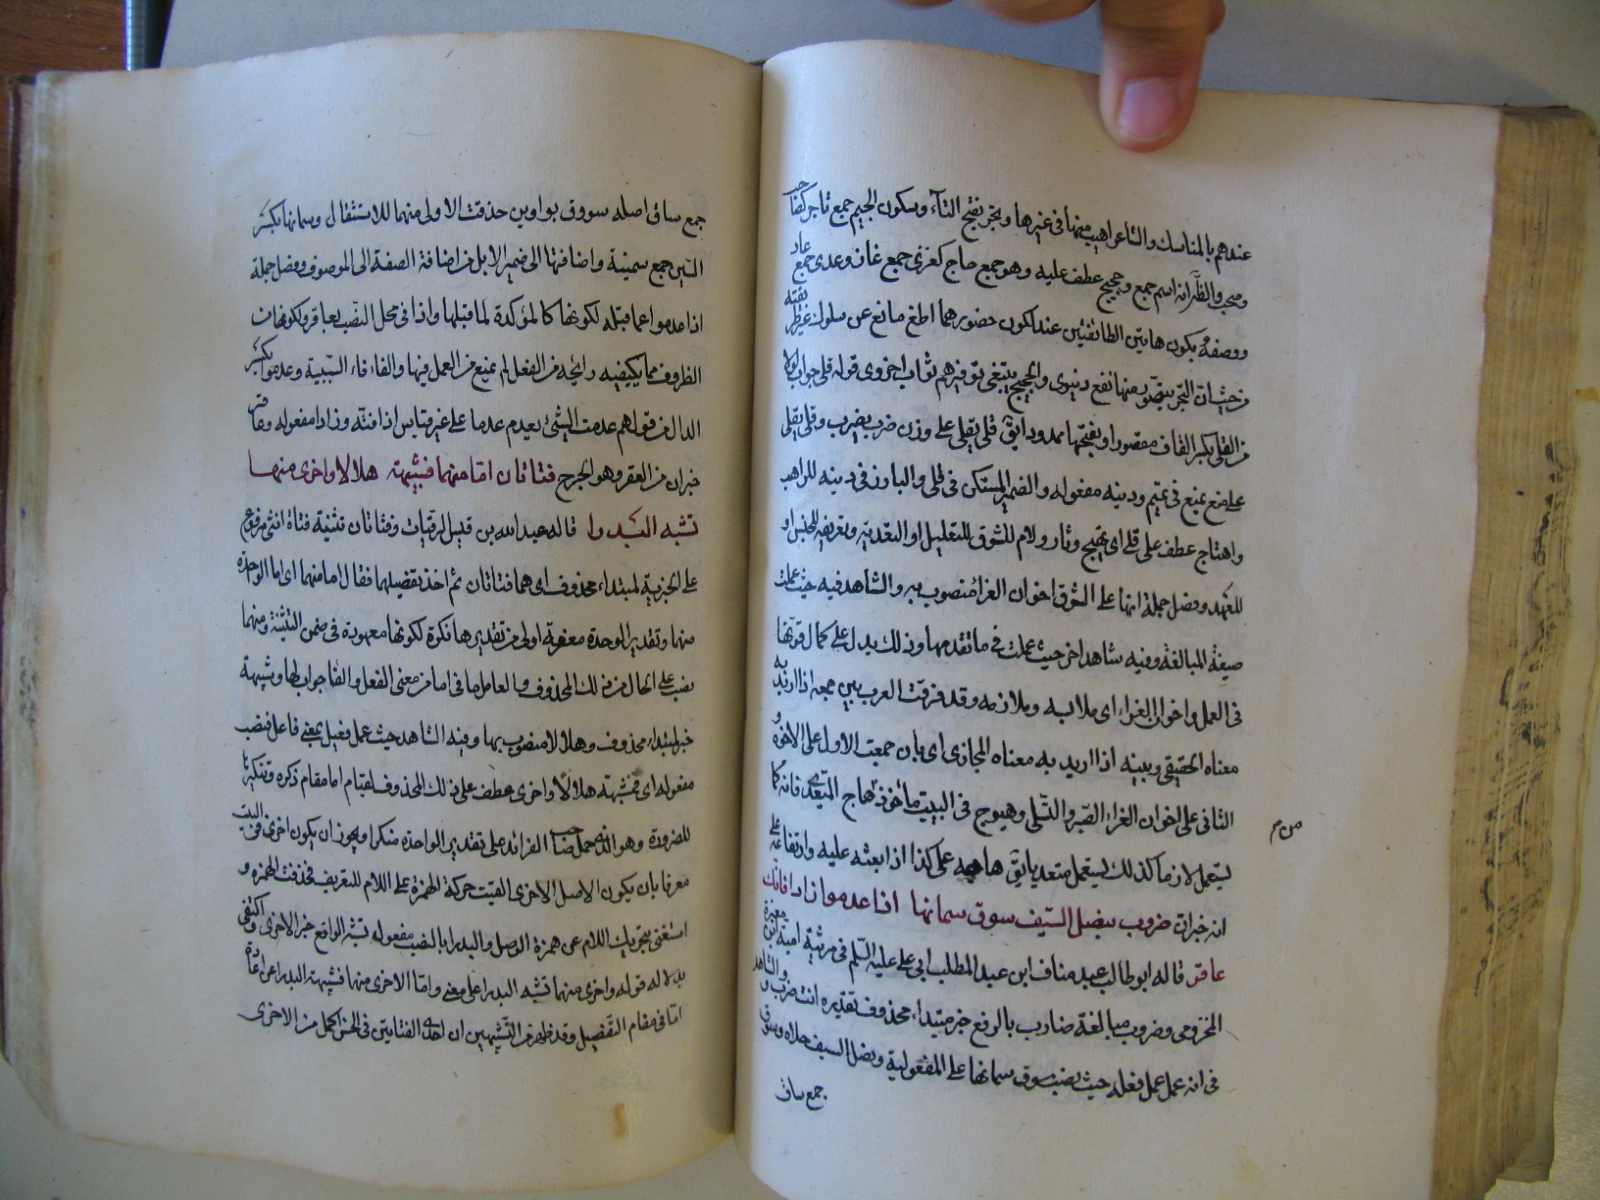 عندهم بالمناسك والتاء واهيب منها في غيرها وتجر بفتح التاء وسكون الجيم جمع تاجر كصاحب
وصحب والظاهر انه اسم جمع وحجيج عطف عليه وهو جمع حاج كغزى جمع غاز وعدى جمع عاد
ووصفه بكون هاتين الطائفتين عند لكون حضورهما ابلغ مانع عن سلوك غير طريقته
من حيث ان التجر يتصور منها نفع دنيوى والحجيج يبتغى بتوقيرهم ثواب اخروى قوله قلى جواب لولا
من القلى بكسر القاف مقصورا وبفتحها ممدودا يق قلى يقلى على وزن ضرب يضرب وقلى يقلى
على منع يمنع في تميم ودينه مفعوله والضمير المستكن في قلى والبارز في دينه للراهب
واهتاج عطف على قلى اى تهيج وثار ولام للشوق للتعليل او التعدية وتعريفه للجنس او
للعهد وفصل جملة انها على الشوق اخوان العزاء منصوب به والشاهد فيه حيث عملت
صيغة المبالغة وفيه شاهد اخر حيث عملت في ما تقدمها وذلك يدل على كمال قوتها
في العمل واخوان العزاء اى ملابسيه وملازميه وقد فرقت العرب بين جمعه اذا اريد به
معناه الحقيقى وبينه اذا اريد به معناه المجازى اى بان جمعت الاول على الاخوة و
الثانى على اخوان العزاء الصبر والتسلى وهيوج في البيت مأخوذ من هاج المتعدى فانه كما
من م
يستعمل لازما كذلك يستعمل متعديا يق هاجه على كذا اذا بعثه عليه وارتفاعه على
انه خبر ان ضروب بنصل السيف سوق سمانها اذا عدموا زادا فانك
عاقر قاله ابو طالب عبد مناف ابن عبد المطلب ابى على عليه السلم في مرثية امية ابن مغيرة
المخزومى وضروب مبالغة ضارب بالرفع خبر مبتداء محذوف تقديره انت ضروب والشاهد
في انه عمل عمل فعله حيث نصب سوق سمانها على المفعولية ونصل السيف حده وسوق
جمع ساق
جمع ساق اصله سووق بواوين حذفت الاولى منهما للاستثقال وسمانها بكسر
السين جمع سمينة واضافتها الى ضمير الابل من اضافة الصفة الى الموصوف وفصل جملة
اذا عدموا عما قبله لكونها كالمؤكدة لما قبلها واذا في محل النصب بعاقر ولكونها من
الظروف مما يكفيه رايحة من الفعل لم يمنع من العمل فيها والفاء فاء السببية وعدموا بكسر
الدال من قولهم عدمت الشئ يعدم عدما على غير قياس اذا فقدته وزادا مفعوله وعاقر
خبر ان من العقر وهو الجرح فتاتان اما منهما فشبيهة هلالا واخرى منهما
تشبه البدرا قاله عبد الله بن قيس الرقيات وفتاتان تثنية فتاة انثى مرفوع
على الخبرية لمبتداء محذوف اى هما فتاتان ثم اخذ بتفصيلهما فقال اما منهما اى اما الواحدة
منهما وتقدير الوحدة معرفة اولى من تقديرها نكرة لكونها معهودة في ضمن التثنية ومنهما
نصب على الحال من ذلك المحذوف والعامل ما في اما من معنى الفعل والفا جواب لها وشبيهة
خبر لمبتداء محذوف وهلالا منصوب بها وفيه الشاهد حيث عمل فعيل بمعنى فاعل فنصب
مفعوله اى فشبيهة هلالا واخرى عطف على ذلك المحذوف لقيام اما مقام ذكره وتنكيرها
للضرورة وهو الذى حمل صاحب الفرائد على تقدير الواحدة منكرا ويجوز ان يكون اخرى في البيت
معرفا بان يكون الاصل الاخرى القيت حركة الهمزة على اللام للتعريف فحذفت الهمزه و
استغنى بتحريك اللام عن همزة الوصل والبدرا بالنصب مفعوله تشبه الواقع خبر الاخرى واكتفى
بدلاله قوله واخرى منهما تشبه البدرا على معنى واما الاخرى منهما فشبيهة البدرا عن اعادة
اما في مقام التفصيل وقد ظهر من التشبيهين ان احدى الفتاتين في الحسن اكمل من الاخرى